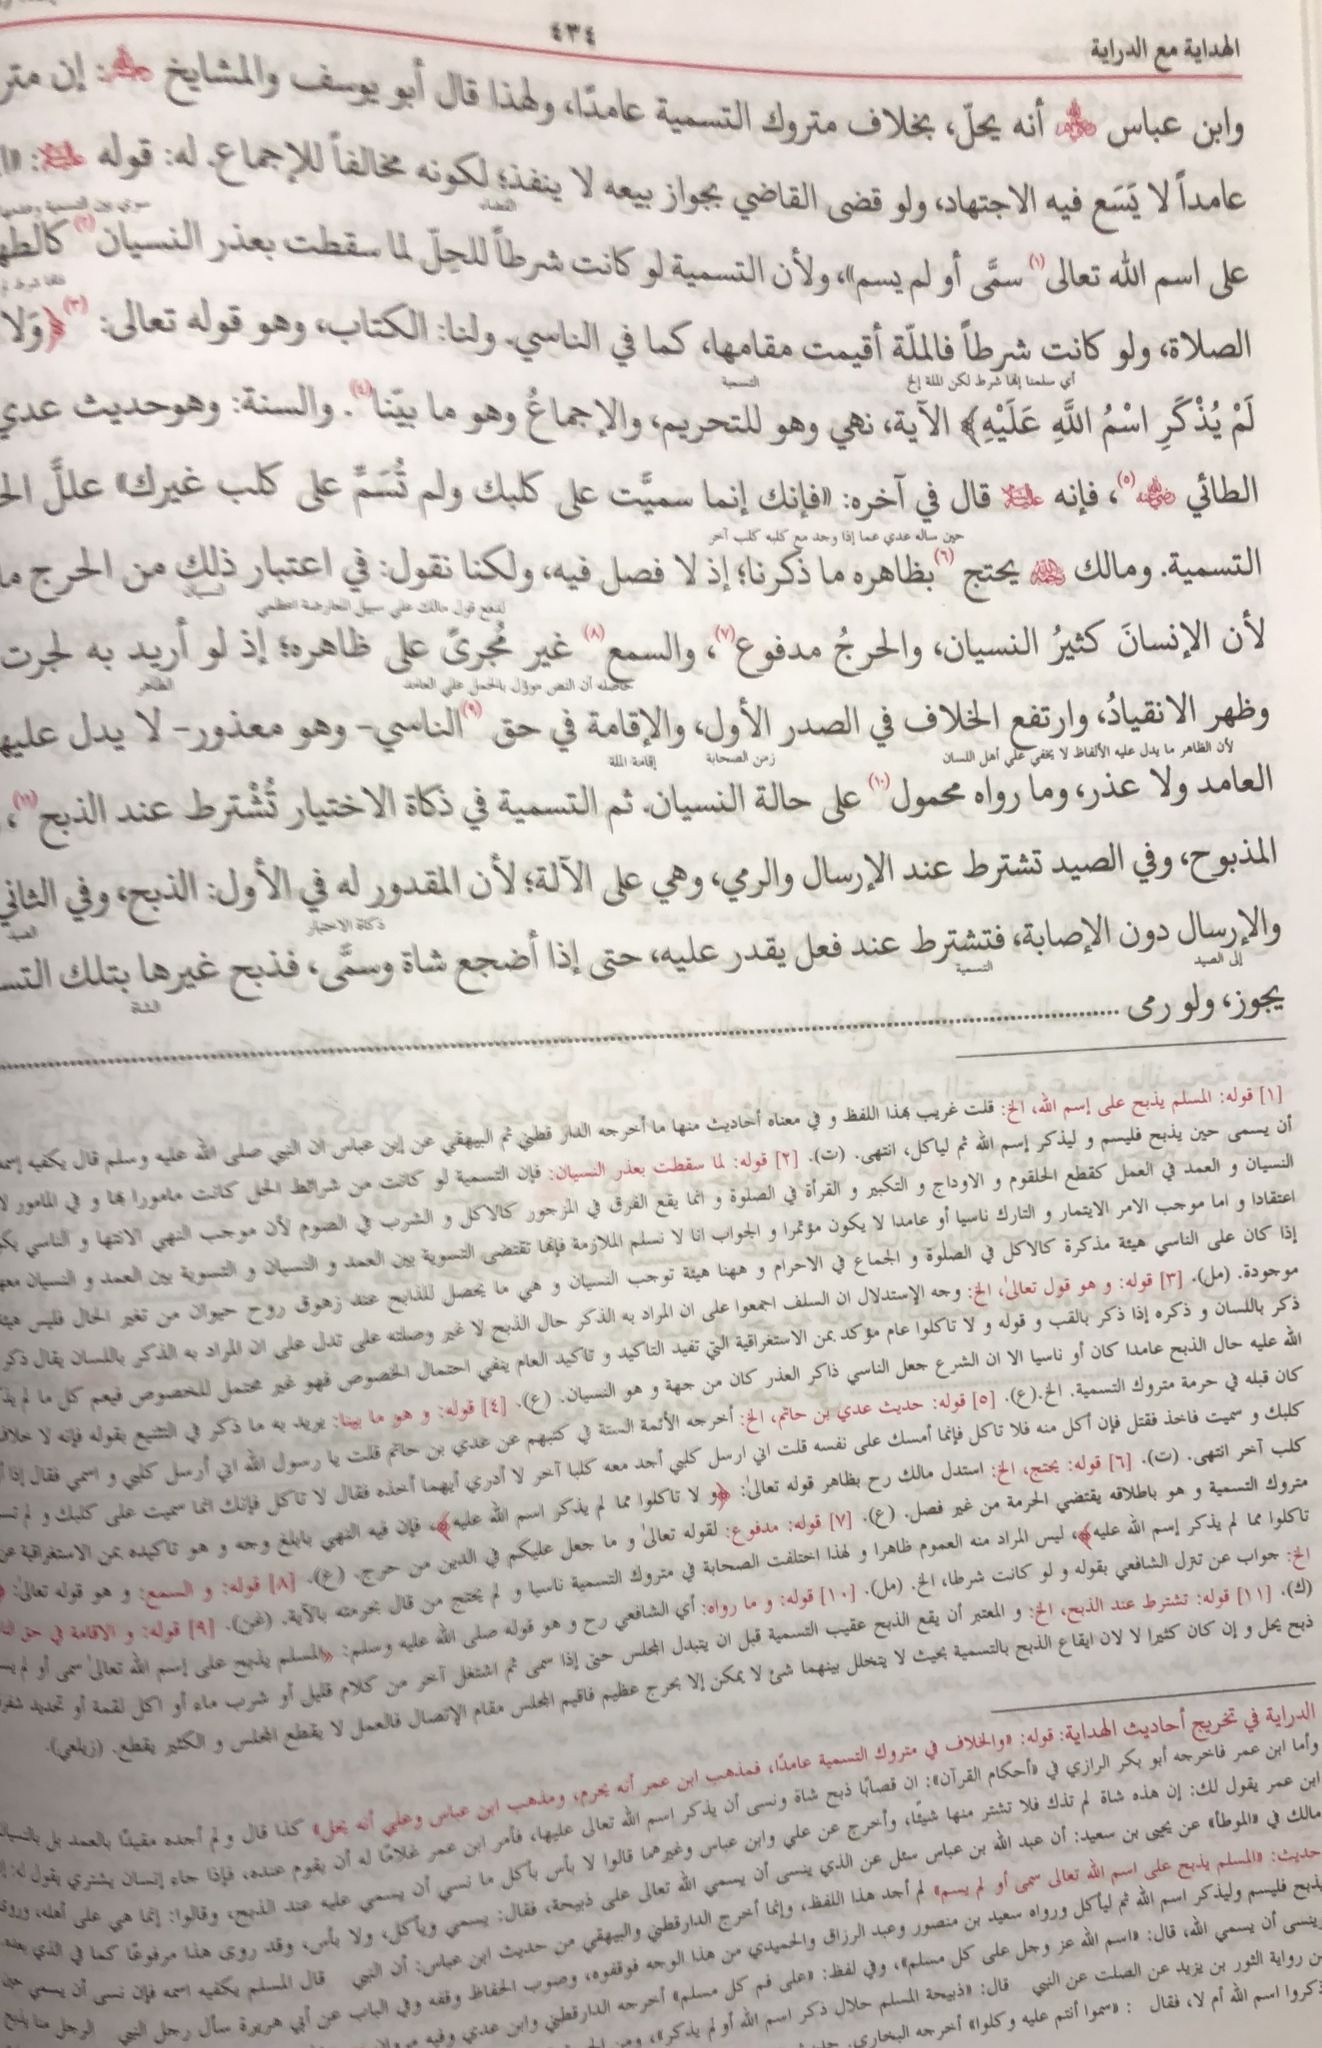 الهداية مع الدراية
٤٣٤
وابن عباس ﵃ أنه يحلّ، بخلاف متروك التسمية عامدًا، ولهذا قال أبو يوسف والمشايخ ﵏: إن متر
عامداً لا يَسَع فيه الاجتهاد، ولو قضى القاضي بجواز بيعه لا ينفذ؛ لكونه مخالفاً للإجماع. له: قوله ﵊: «ا
القضاء
سوي بين التسمية وعدمها
على اسم الله تعالى(١) سمَّى أو لم يسم»، ولأن التسمية لو كانت شرطاً للحِلّ لما سقطت بعذر النسيان(٢) كالطها
الصلاة، ولو كانت شرطاً فالملّة أقيمت مقامها، كما في الناسي. ولنا: الكتاب، وهو قوله تعالى:(٣) ﴿وَلَا
أي سلمنا إنها شرط لكن الملة إلخ
التسمية
لَمْ يُذْكَرِ اسْمُ اللَّهِ عَلَيْهِ﴾ الآية، نهي وهو للتحريم، والإجماعُ وهو ما بيّنا(٤). والسنة: وهوحديث عدي
الطائي ﵁(٥)، فإنه ﵊ قال في آخره: «فإنك إنما سميَّت على كلبك ولم تُسَمِّ على كلب غيرك» علّلَ الح
حين ساله عدي عما إذا وجد مع كلبه كلب آخر
التسمية. ومالك ﵀ يحتج(٦) بظاهره ما ذكرنا؛ إذ لا فصل فيه، ولكنا نقول: في اعتبار ذلك من الحرج ما
لدفع قول مالك على سبيل المعارضة
لأن الإنسانَ كثيرُ النسيان، والحرجُ مدفوع(٧)، والسمع(٨) غير مُجرىً على ظاهره؛ إذ لو أريد به لجرت
حاصله أن النص مؤول بالحمل على العامد
الظاهر
وظهر الانقيادُ، وارتفع الخلاف في الصدر الأول، والإقامة في حق(٩) الناسي- وهو معذور- لا يدل عليها
لأن الظاهر ما يدل عليه الألفاظ لا يخفي علي أهل اللسان
زمن الصحابة
إقامة الملة
العامد ولا عذر، وما رواه محمول(١٠) على حالة النسيان. ثم التسمية في ذكاة الاختيار تُشْترط عند الذبح(١١)،
المذبوح، وفي الصيد تشترط عند الإرسال والرمي، وهي على الآلة؛ لأن المقدور له في الأول: الذبح، وفي الثاني
ذكاة الاختيار
الصيد
والإرسال دون الإصابة، فتشترط عند فعل يقدر عليه، حتى إذا أضجع شاة وسمَّى، فذبح غيرها بتلك التس
إلى الصيد
التسمية
الشاة
يجوز، ولو رمى
[١] قوله: المسلم يذبح على إسم الله، الخ: قلت غريب بهذا اللفظ و في معناه أحاديث منها ما أخرجه الدار قطني ثم البيهقي عن إبن عباس ان النبي صلى الله عليه وسلم قال يكفيه إسمه
أن يسمى حين يذبح فليسم و ليذكر إسم الله ثم لياكل، انتهى. (ت). [٢] قوله: لما سقطت بعذر النسيان: فإن التسمية لو كانت من شرائط الحل كانت مامورا بها و في المامور لا
النسيان و العمد في العمل كقطع الحلقوم و الاوداج و التكبير و القرأة في الصلوة و انما يقع الفرق في المزجور كالاكل و الشرب في الصوم لأن موجب النهي الانتها و الناسي يكو
اعتقادا و اما موجب الامر الايتمار و التارك ناسيا أو عامدا لا يكون مؤتمرا و الجواب انا لا نسلم الملازمة فإنها تقتضى التسوية بين العمد و النسيان و التسوية بين العمد و النسيان معه
إذا كان على الناسي هيئة مذكرة كالاكل في الصلوة و الجماع في الاحرام و ههنا هيئة توجب النسيان و هي ما يحصل للذابح عند زهوق روح حيوان من تغير الحال فليس هيئة
موجودة. (مل). [٣] قوله: و هو قول تعالى، الخ: وجه الإستدلال ان السلف اجمعوا على ان المراد به الذكر حال الذبح لا غير وصلته على تدل على ان المراد به الذكر باللسان يقال ذكر
ذكر باللسان و ذكره إذا ذكر بالقب و قوله و لا تاكلوا عام مؤكد بمن الاستغراقية التي تفيد التاكيد و تاكيد العام ينفي احتمال الخصوص فهو غير محتمل للخصوص فيعم كل ما لم يذ
الله عليه حال الذبح عامدا كان أو ناسيا الا ان الشرع جعل الناسي ذاكر العذر كان من جهة و هو النسيان. (ع). [٤] قوله: و هو ما بينا: يريد به ما ذكر في التشنيع بقوله فإنه لا خلاف
كان قبله في حرمة متروك التسمية. الخ.(ع). [٥] قوله: حديث عدي بن حاتم، الخ: أخرجه الأئمة الستة في كتبهم عن عدي بن حاتم قلت يا رسول الله اني أرسل كلبي و اسمي فقال إذا أ
كلبك و سميت فاخذ فقتل فإن أكل منه فلا تاكل فإنما أمسك على نفسه قلت اني ارسل كلبي أجد معه كلبا آخر لا أدري أيهما أخذه فقال لا تاكل فإنك انما سميت على كلبك و لم تس
كلب آخر انتهى. (ت). [٦] قوله: يحتج، الخ: استدل مالك رح بظاهر قوله تعالى: ﴿و لا تاكلوا مما لم يذكر اسم الله عليه﴾، فإن فيه النهي بابلغ وجه و هو تاكيده بمن الاستغراقية عن
متروك التسمية و هو باطلاقه يقتضي الحرمة من غير فصل. (ع). [٧] قوله: مدفوع: لقوله تعالى و ما جعل عليكم في الدين من حرج. (ع). [٨] قوله: و السمع: و هو قوله تعالى:
تاكلوا مما لم يذكر إسم الله عليه﴾، ليس المراد منه العموم ظاهرا و لهذا اختلفت الصحابة في متروك التسمية ناسيا و لم يحتج من قال بحرمته بالآية. (عن). [٩] قوله: و الاقامة في حق النا
الخ: جواب عن تنزل الشافعي بقوله و لو كانت شرطا، الخ. (مل). [١٠] قوله: و ما رواه: أي الشافعي رح و هو قوله صلى الله عليه وسلم: «المسلم يذبح على إسم الله تعالىٰ سمى أو لم يس
(ك). [١١] قوله: تشترط عند الذبح، الخ: و المعتبر أن يقع الذبح عقيب التسمية قبل ان يتبدل المجلس حتى إذا سمى ثم اشتغل آخر من كلام قليل أو شرب ماء أو اكل لقمة أو تحديد شفرة
ذبح يحل و إن كان كثيرا لا لان ايقاع الذبح بالتسمية بحيث لا يتخلل بينهما شئ لا يمكن إلا بحرج عظيم فاقيم المجلس مقام الإتصال فالعمل لا يقطع المجلس و الكثير يقطع. (زيلعي).
الدراية في تخريج أحاديث الهداية: قوله: «والخلاف في متروك التسمية عامدًا، فمذهب ابن عمر أنه يحرم، ومذهب ابن عباس وعلي أنه يحل» كذا قال و لم أجده مقيدًا بالعمد بل بالنسيان
وأما ابن عمر فاخرجه أبو بكر الرازي في «أحكام القرآن»: ان قصابًا ذبح شاة ونسى أن يذكر اسم الله تعالى عليها، فأمر ابن عمر غلامًا له أن يقوم عنده، فإذا جاء إنسان يشتري يقول له: إ
ابن عمر يقول لك: إن هذه شاة لم تذك فلا تشتر منها شيئًا، وأخرج عن علي وابن عباس وغيرهما قالوا لا بأس بأكل ما نسي أن يسمي عليه عند الذبح، وقالوا: إنما هي على أهله، وروى
مالك في «الموطأ» عن يحيى بن سعيد: أن عبد الله بن عباس سئل عن الذي ينسى أن يسمي الله تعالى على ذبيحة، فقال: يسمي ويأكل، ولا بأس، وقد روى هذا مرفوعًا كما في الذي بعده.
حديث: «المسلم يذبح على اسم الله تعالى سمى أو لم يسم» لم أجد هذا اللفظ، وإنما أخرج الدارقطني والبيهقي من حديث ابن عباس: أن النبي قال المسلم يكفيه اسمه فإن نسى أن يسمي حين
يذبح فليسم وليذكر اسم الله ثم ليأكل ورواه سعيد بن منصور وعبد الرزاق والحميدي من هذا الوجه فوقفوه، وصوب الحفاظ وقفه وفي الباب عن أبي هريرة سأل رجل النبي الرجل منا يذبح
وينسى أن يسمي الله، قال: «اسم الله عز وجل على كل مسلم»، وفي لفظ: «على فم كل مسلم» أخرجه الدارقطني وابن عدي وفيه مروان
من رواية الثور بن يزيد عن الصلت عن النبي قال: «ذبيحة المسلم حلال ذكر اسم الله أو لم يذكر»، ومن
ذكروا اسم الله أم لا، فقال : «سموا أنتم عليه وكلوا» أخرجه البخاري.